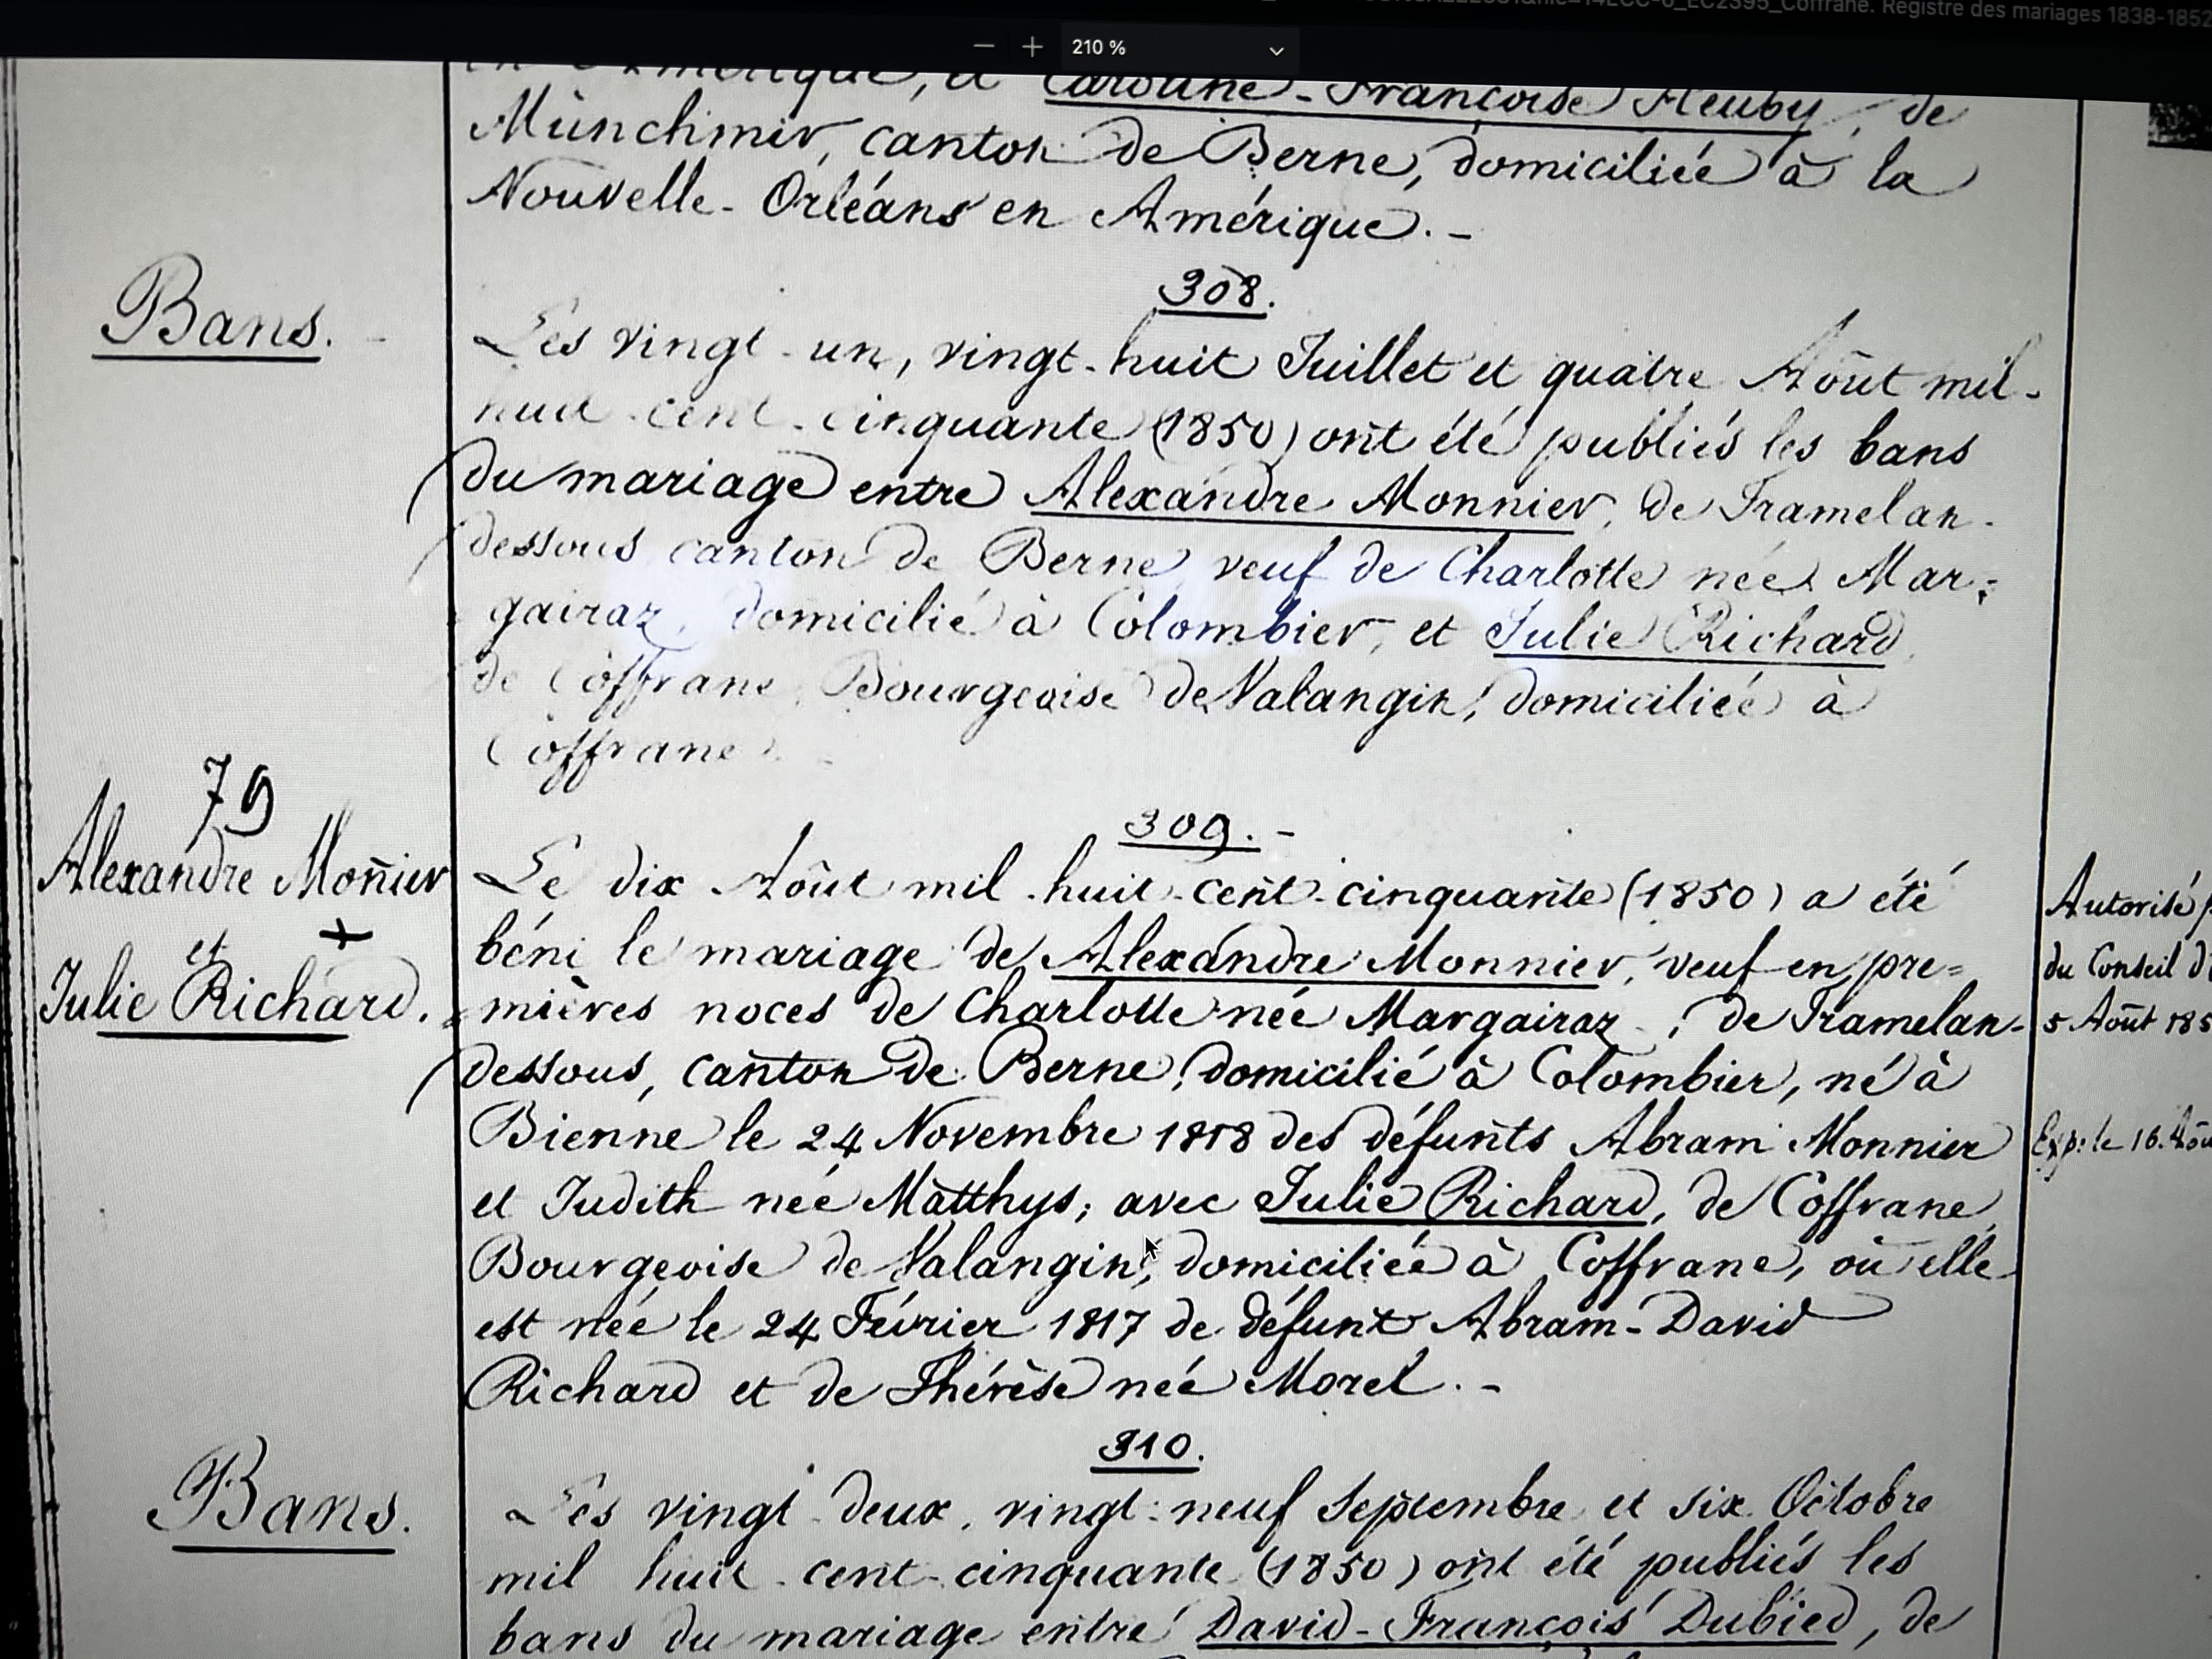 Coffrane. Registre des mariages 1838-1852
210 %
en Amérique, et Caroline-Françoise Heuby, de
Münchmir, canton de Berne, domiciliée à la
Nouvelle-Orléans en Amérique.-
308.
Bans.
Les vingt-un, vingt-huit Juillet et quatre Août mil-
huit-cent-cinquante (1850) ont été publiés les bans
du mariage entre Alexandre Monnier, de Tramelan-
dessous canton de Berne, veuf de Charlotte née Mar-
gairaz, domicilié à Colombier, et Julie Richard,
de Coffrane, Bourgeoise de Valangin, domiciliée à
Coffrane.
79
Alexandre Mon̄ier
et
Julie Richard.
309.-
Le dix Août mil-huit-cent-cinquante (1850) a été
béni le mariage de Alexandre Monnier, veuf en pre=
mières noces de Charlotte née Margairaz, de Tramelan-
dessous, canton de Berne, domicilié à Colombier, né à
Bienne le 24 Novembre 1818 des défunts Abram Monnier
et Judith née Matthys; avec Julie Richard, de Coffrane,
Bourgeoise de Valangin, domiciliée à Coffrane, où elle
est née le 24 Février 1817 de défunt Abram-David
Richard et de Thérèse née Morel.-
Autorisé
du Conseil d
5 Août 185
Exp: le 16. Aoû
310.
Bans.
Les vingt-deux, vingt-neuf Septembre et six Octobre
mil huit-cent-cinquante (1850) ont été publiés les
bans du mariage entre David-François Dubied, de